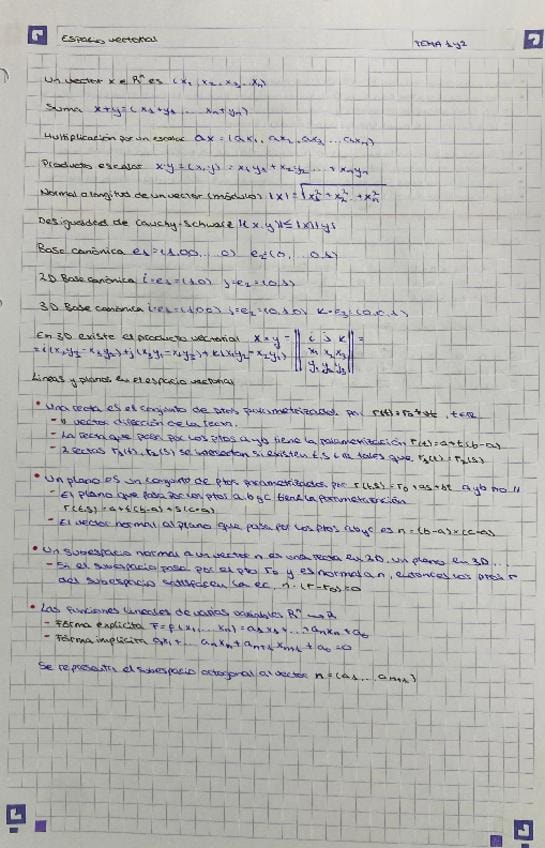 Espacio vectorial
TEMA 1 y 2
Un vector x ∈ Rⁿ es (x₁, x₂, x₃ ... xₙ)
Suma x+y=(x₁+y₁ ... xₙ+yₙ)
Multiplicación por un escalar ax = (ax₁, ax₂, ax₃ ... axₙ)
Producto escalar x·y = (x,y) = x₁y₁ + x₂y₂ ... + xₙyₙ
Norma o longitud de un vector (módulo) |x| = √x₁² + x₂² ... + xₙ²
Desigualdad de Cauchy-Schwarz |(x,y)| ≤ |x||y|
Base canónica e₁=(1,0,0,...0) eₙ=(0, ... 0,1)
2D Base canónica i=e₁=(1,0) j=e₂=(0,1)
3D Base canónica i=e₁=(1,0,0) j=e₂=(0,1,0) k=e₃=(0,0,1)
En 3D existe el producto vectorial x×y = || i j k x₁ x₂ x₃ y₁ y₂ y₃ || =
= i(x₂y₃-x₃y₂)+j(x₃y₁-x₁y₃)+k(x₁y₂-x₂y₁)
Líneas y planos en el espacio vectorial
• Una recta es el conjunto de ptos parametrizados por r(t)=r₀+vt, t∈R
- v vector dirección de la recta.
- La recta que pasa por los ptos a y b tiene la parametrización r(t)=a+t(b-a)
- 2 rectas r₁(t), r₂(s) se intersectan si existen t,s ∈ R tales que r₁(t)=r₂(s)
• Un plano es un conjunto de ptos parametrizados por r(t,s)=r₀+as+bt a y b no //
- El plano que pasa por los ptos a, b y c tiene la parametrización
r(t,s)=a+t(b-a)+s(c-a)
- El vector normal al plano que pasa por los ptos a, b y c es n=(b-a)×(c-a)
• Un subespacio normal a un vector n es una recta en 2D, un plano en 3D...
- Si el subespacio pasa por el pto r₀ y es normal a n, entonces los ptos r
del subespacio satisfacen la ec. n·(r-r₀)=0
• Las funciones lineales de varias variables Rⁿ → R
- Forma explícita F=f(x₁, ... xₙ)=a₁x₁+...+aₙxₙ+a₀
- Forma implícita a₁x₁+... aₙxₙ+aₙ₊₁xₙ₊₁+a₀=0
Se representa el subespacio ortogonal al vector n=(a₁...aₙ₊₁)